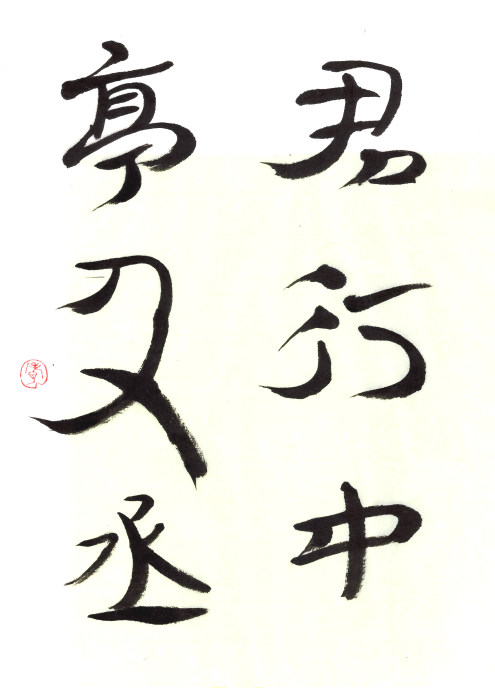 君行中
亭及丞